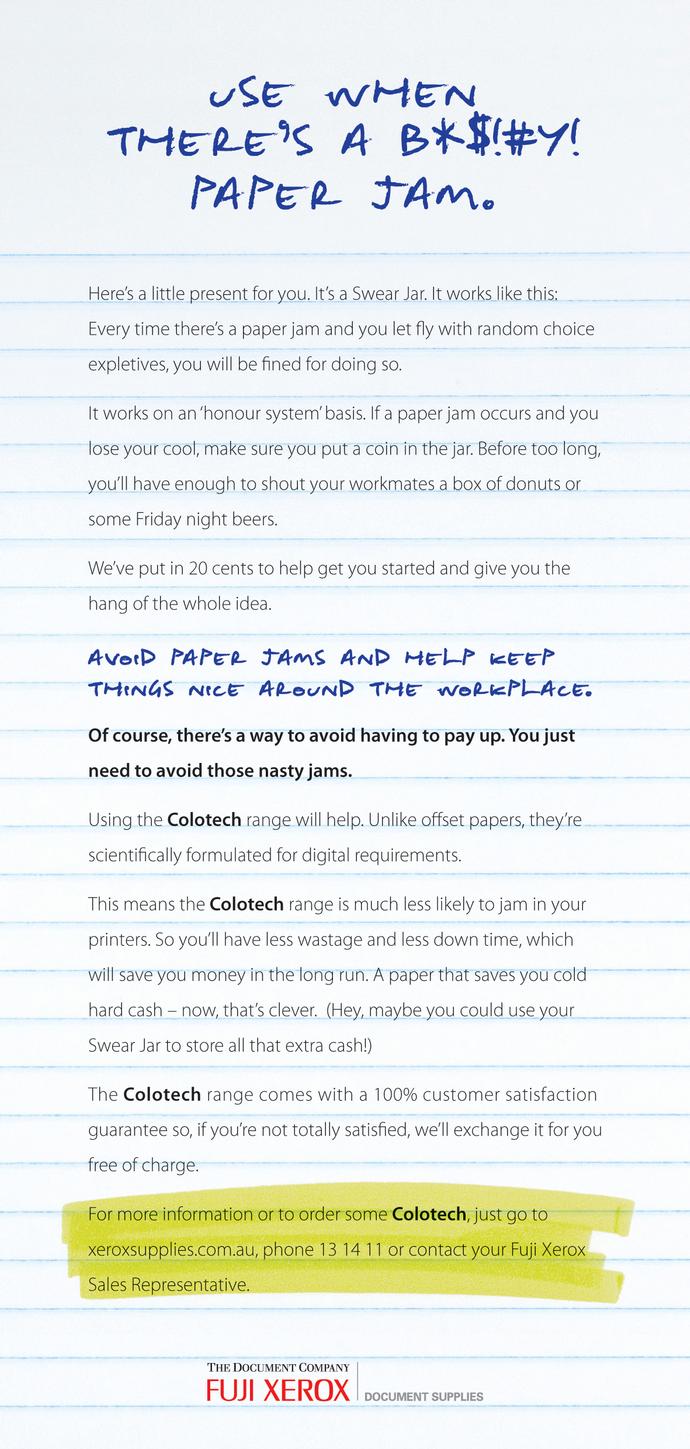 USE WHEN
THERE'S A B*$!#Y!
PAPER JAM.
Here's a little present for you. It's a Swear Jar. It works like this:
Every time there's a paper jam and you let fly with random choice
expletives, you will be fined for doing so.
It works on an 'honour system' basis. If a paper jam occurs and you
lose your cool, make sure you put a coin in the jar. Before too long,
you'll have enough to shout your workmates a box of donuts or
some Friday night beers.
We've put in 20 cents to help get you started and give you the
hang of the whole idea.
AVOID PAPER JAMS AND HELP KEEP
THINGS NICE AROUND THE WORKPLACE.
Of course, there's a way to avoid having to pay up. You just
need to avoid those nasty jams.
Using the Colotech range will help. Unlike offset papers, they're
scientifically formulated for digital requirements.
This means the Colotech range is much less likely to jam in your
printers. So you'll have less wastage and less down time, which
will save you money in the long run. A paper that saves you cold
hard cash – now, that's clever.  (Hey, maybe you could use your
Swear Jar to store all that extra cash!)
The Colotech range comes with a 100% customer satisfaction
guarantee so, if you're not totally satisfied, we'll exchange it for you
free of charge.
For more information or to order some Colotech, just go to
xeroxsupplies.com.au, phone 13 14 11 or contact your Fuji Xerox
Sales Representative.
THE DOCUMENT COMPANY
FUJI XEROX DOCUMENT SUPPLIES